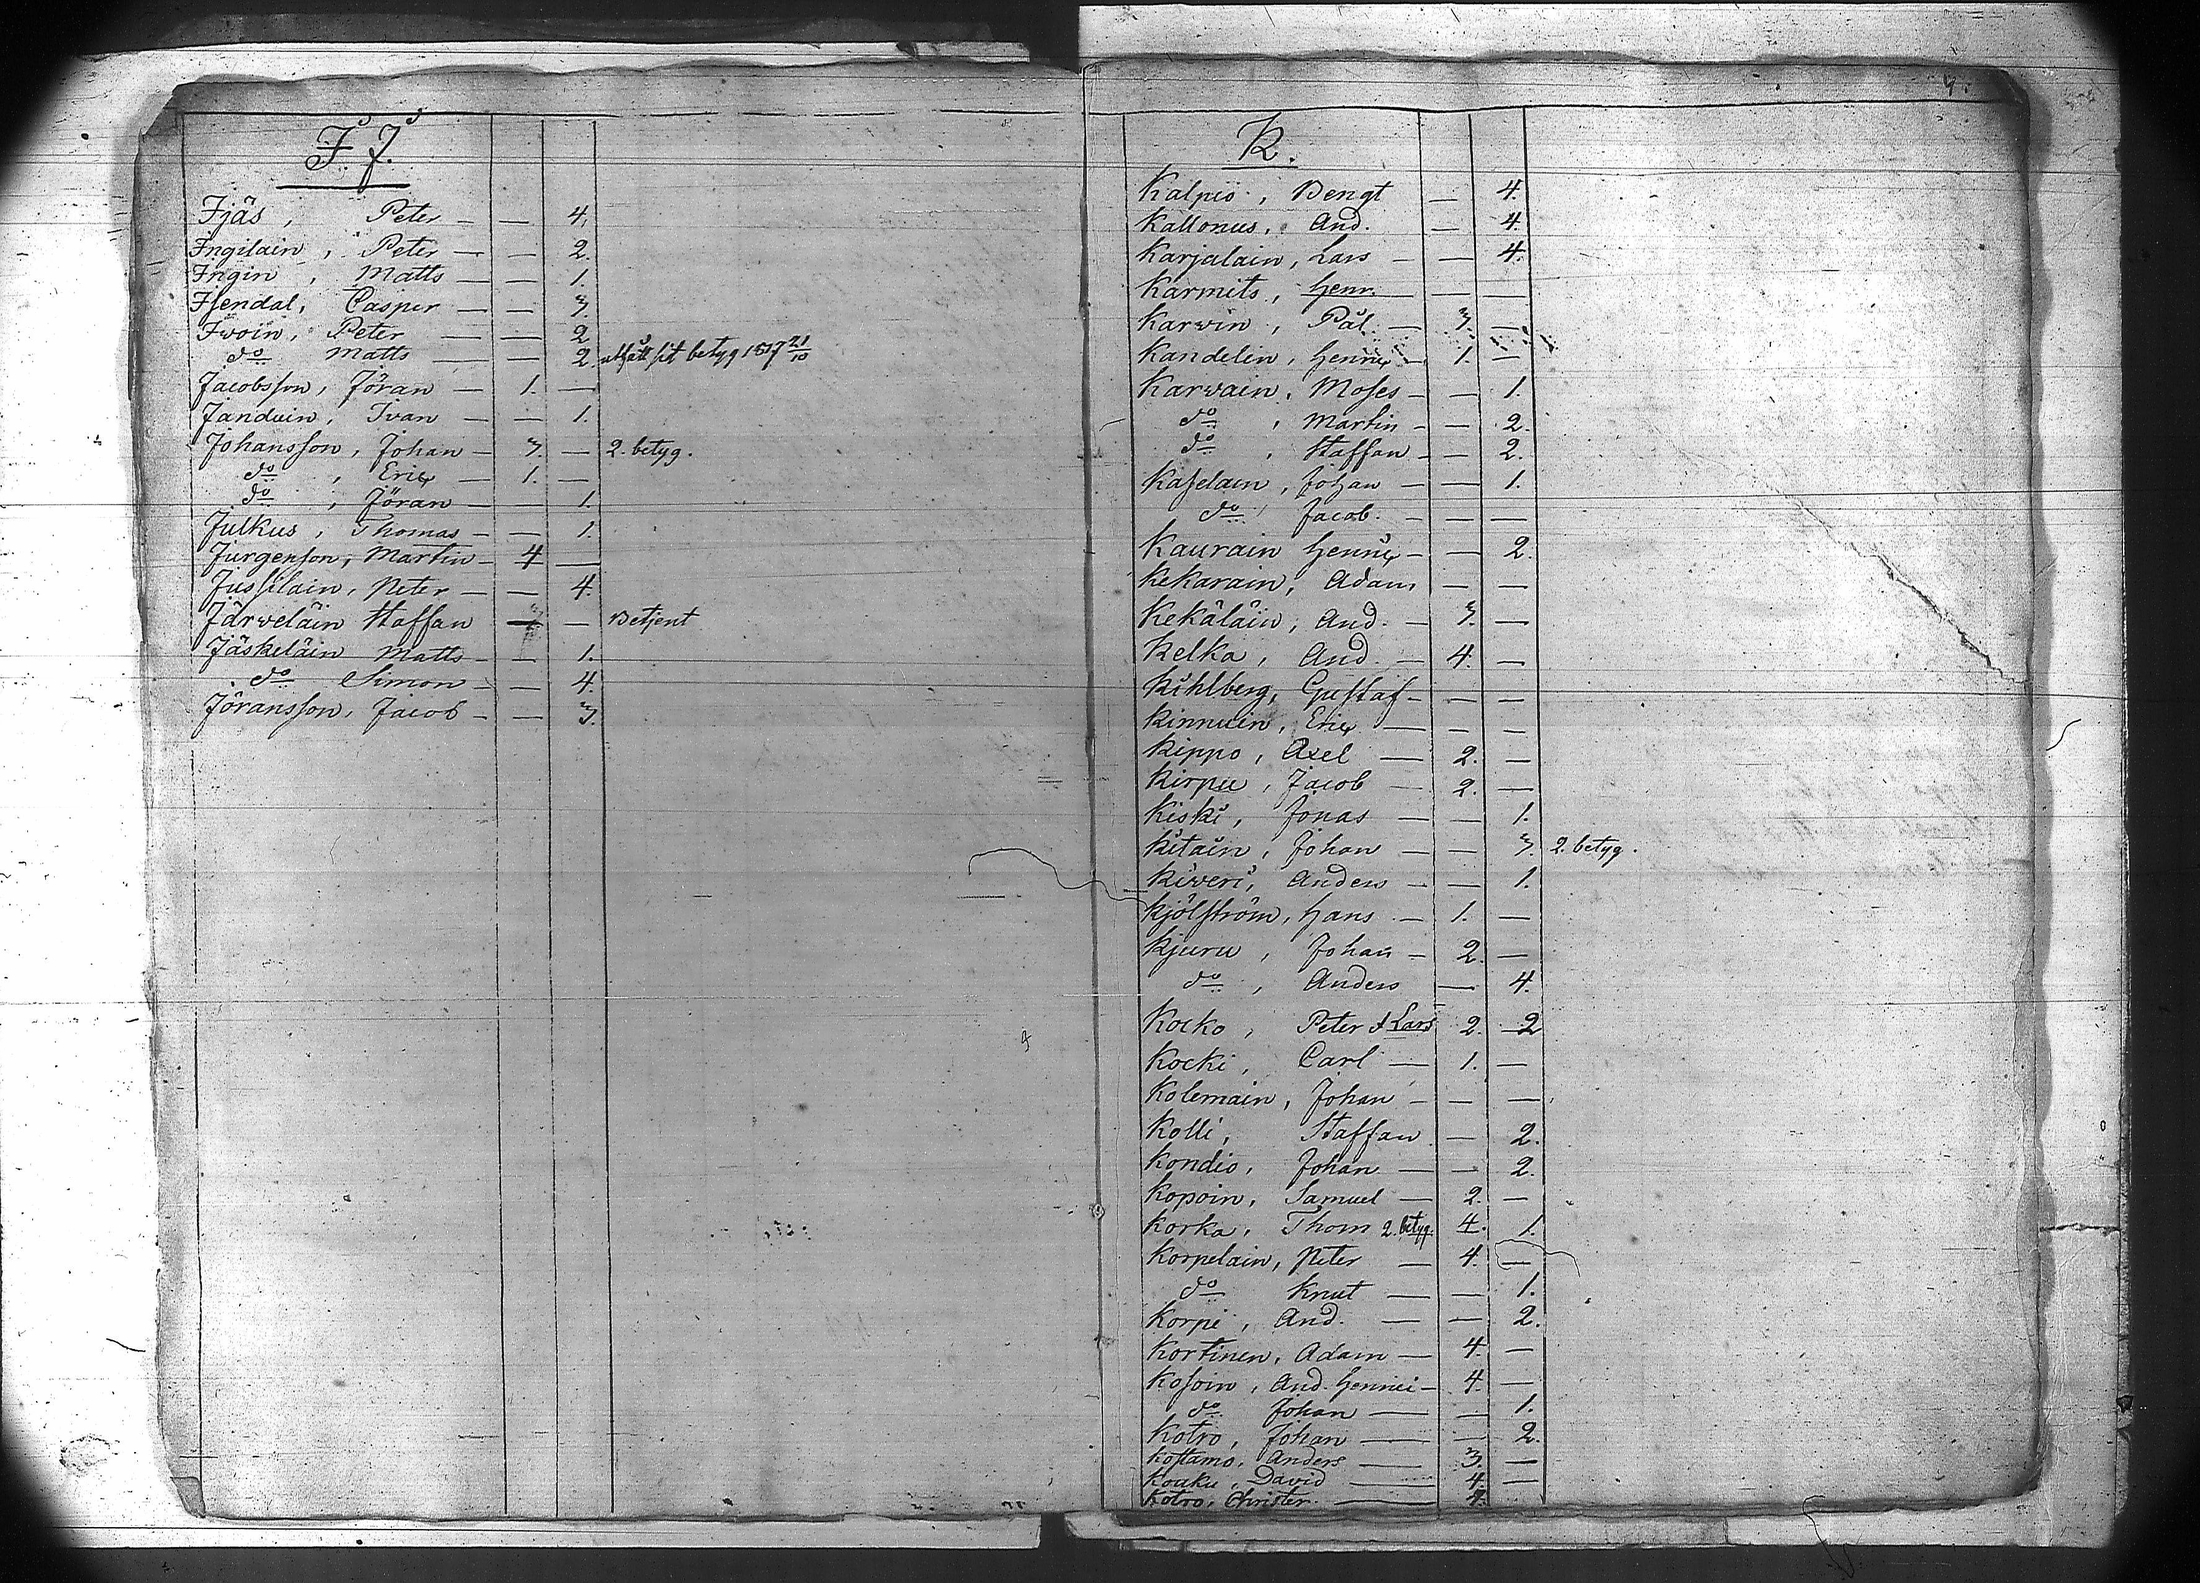 I. J.
Ijäs, Peter — — 4.
Ingilain, Peter — — 2.
Ingin, Matts — — 1.
Isendal, Casper — — 3.
Iwoin, Peter — — 2
do Matts — — 2. utfått sit betyg 1817 21/10
Jacobsson, Jöran — 1. —
Janduin, Ivan — — 1.
Johansson, Johan — 3. — 2. betyg.
do, Eric — 1. —
do, Jöran — — 1.
Julkus, Thomas — — 1.
Jurgenson, Martin — 4 —
Jussilain, Peter — — 4.
Järveläin Staffan — — Betjent
Jäskeläin Matts — — 1.
do Simon — — 4.
Jöransson, Jacob — — 3.
K.
Kalpio, Bengt — 4.
Kallonus, And. — 4.
Karjalain, Lars — — 4.
Karmits, Henr. — —
Karwin, Pål — 3. —
Kandelin, Henric — 1. —
Karvain, Moses — — 1.
do, Martin — — 2.
do, Staffan — — 2.
Kaselain, Johan — — 1.
do, Jacob. — — —
Kaurain Henric — — 2.
Kekarain, Adam — —
Kekäläin, And. — 3. —
Kelka, And. — 4. —
Kihlberg, Gustaf — — —
Kinnuin, Eric — — —
Kippo, Axel — 2. —
Kirpu, Jacob — 2. —
Kiski, Jonas — — 1.
Kitain, Johan — — 3. 2. betyg.
Kiveri, Anders — — 1.
Kjölström, Hans — 1. —
Kjuru, Johan — 2. —
do, Anders — 4.
Kocko, Peter & Lars 2. 2
Kocki, Carl — 1. —
Kolemain, Johan — — —
Kolli, Staffan — 2.
Kondio, Johan — — 2.
Kopoin, Samuel — 2. —
Korka, Thom 2. betyg. 4. 1.
Korpelain, Peter — 4. —
do Knut — — 1.
Korpi, And. — — 2.
Kortinen, Adam — 4. —
Kosoin, And. Henric — 4. —
do Johan — — 1.
Kotro, Johan — — 2.
Kostamo, Anders — 3. —
Kouku, David — 4. —
Kotro, Christer — 4.